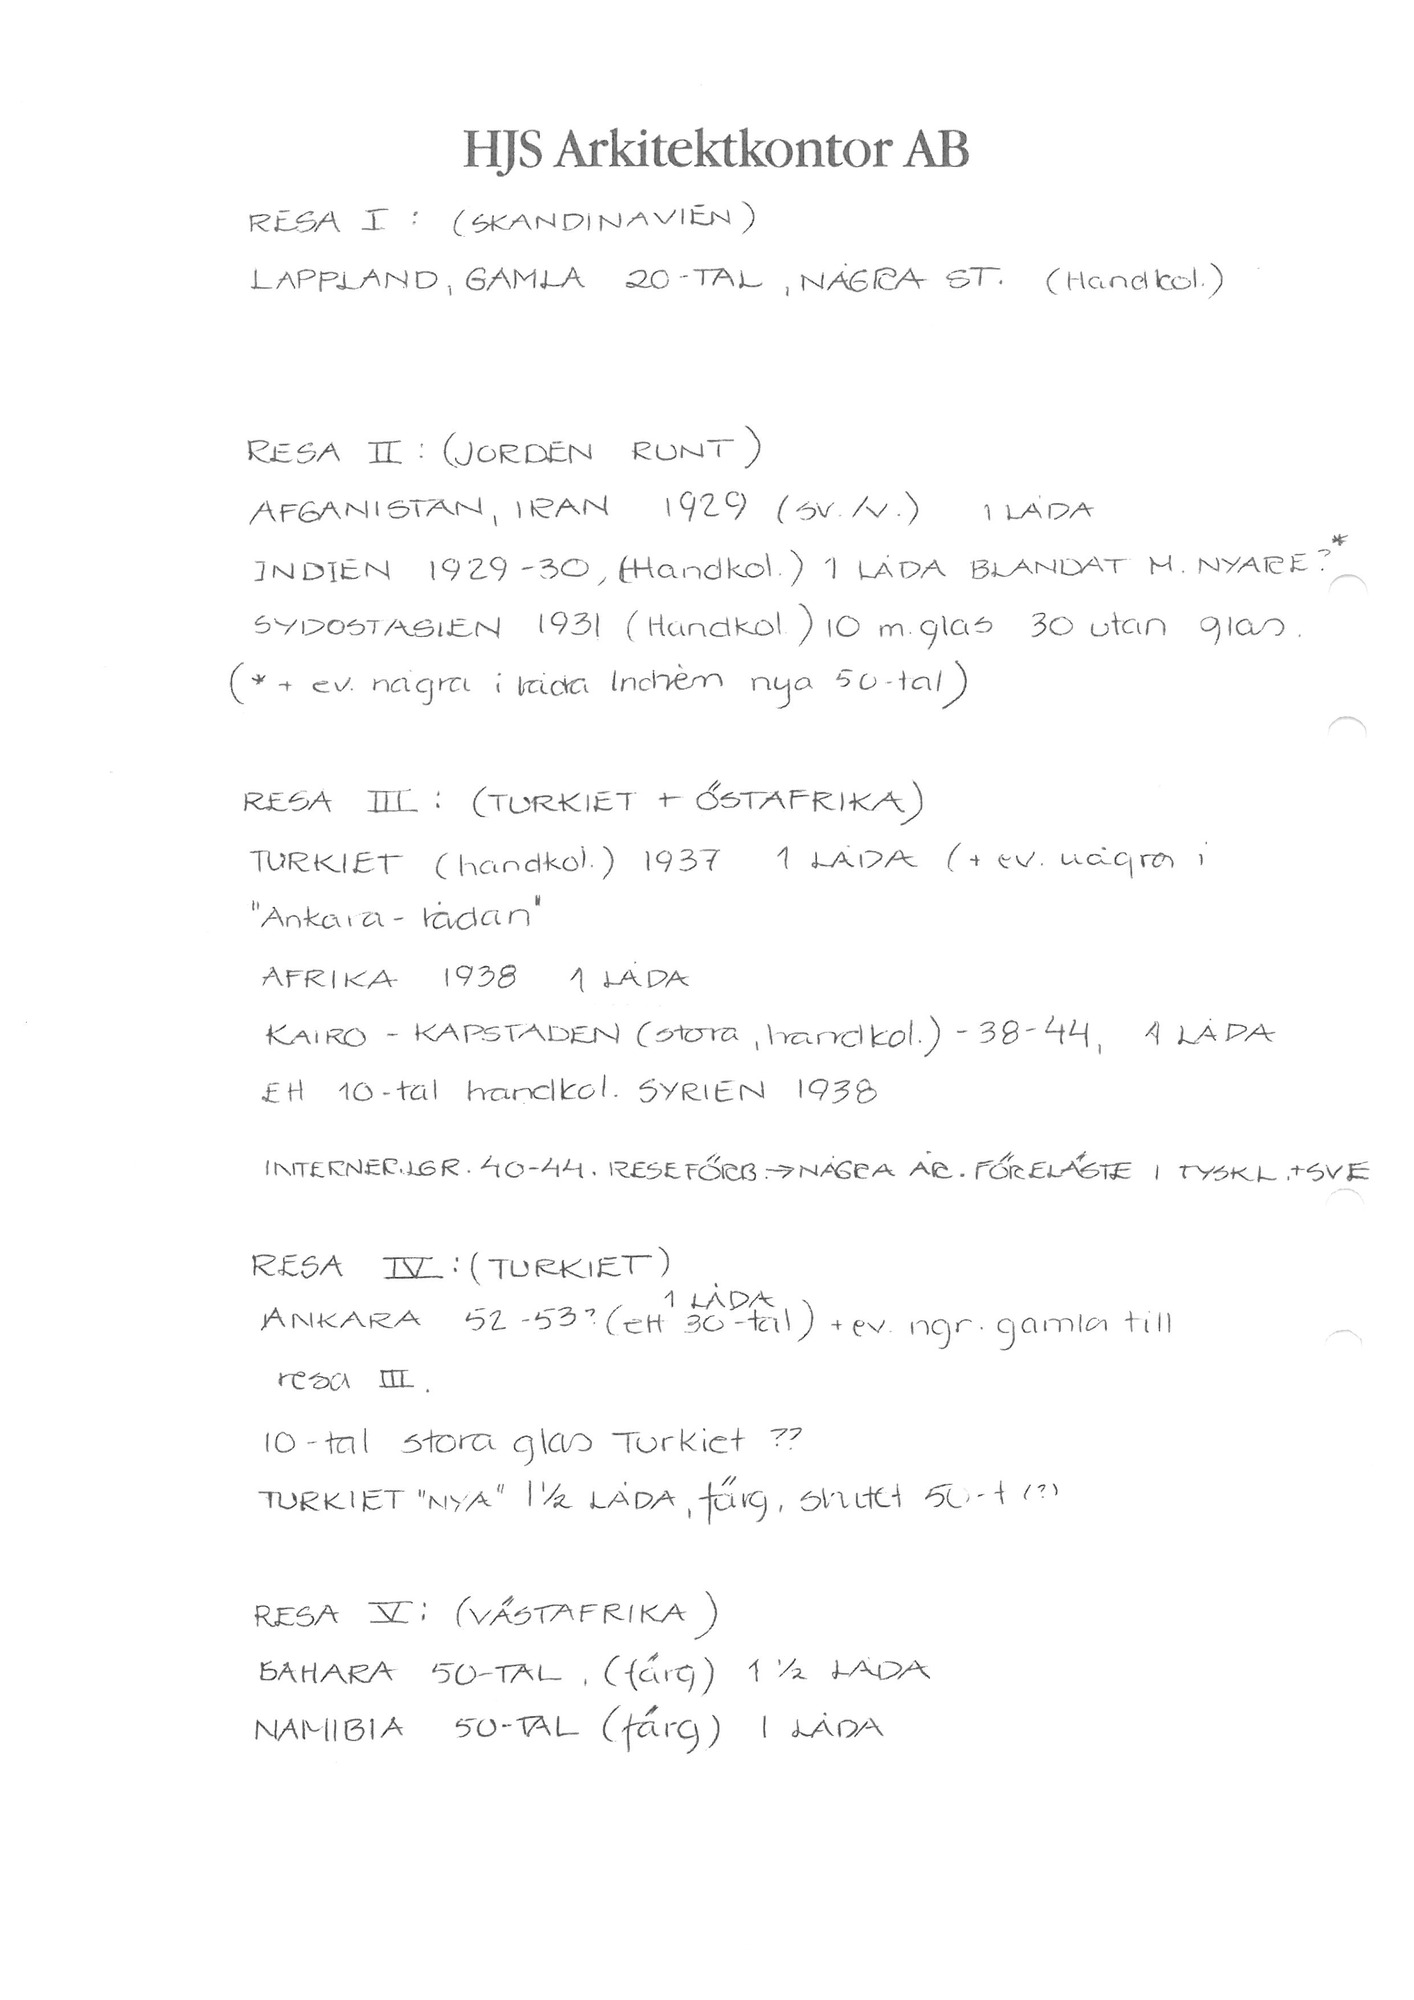 HJS Arkitektkontor AB
RESA I : (SKANDINAVIEN)
LAPPLAND, GAMLA 20-TAL, NÅGRA ST. (Handkol.)
RESA II : (JORDEN RUNT)
AFGANISTAN, IRAN 1929 (sv./v.) 1 LÅDA
INDIEN 1929-30, (Handkol.) 1 LÅDA BLANDAT M. NYARE?*
SYDOSTASIEN 1931 (Handkol.) 10 m. glas 30 utan glas.
(* + ev. några i låda Indien nya 50-tal)
RESA III : (TURKIET + ÖSTAFRIKA)
TURKIET (handkol.) 1937 1 LÅDA (+ ev. några i
"Ankara-lådan"
AFRIKA 1938 1 LÅDA
KAIRO - KAPSTADEN (stora, handkol.) -38-44, 1 LÅDA
Ett 10-tal handkol. SYRIEN 1938
INTERNER.LGR. 40-44. RESEFÖRB.→NÅGRA ÅR. FÖRELÄSTE I TYSKL.+SVE
RESA IV : (TURKIET)
1 LÅDA
ANKARA 52-53? (ett 30-tal) + ev. ngr. gamla till
resa III.
10-tal stora glas Turkiet ??
TURKIET "NYA" 1 1/2 LÅDA, färg, slutet 50-t (?)
RESA V : (VÄSTAFRIKA)
SAHARA 50-TAL, (färg) 1 1/2 LÅDA
NAMIBIA 50-TAL (färg) 1 LÅDA